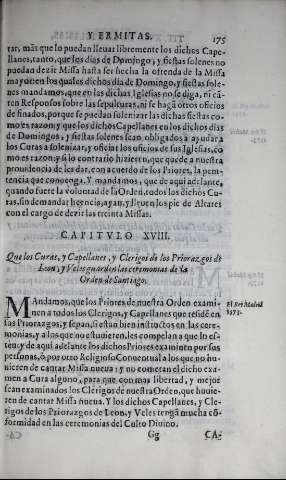 Y ERMITAS. 175
tar, más que lo puedan lleuar libremente los dichos Cape-
llanes, tanto, que los dias de Domingo, y fiestas solenes no
puedan dezir Missa hasta ser hecha la ofrenda de la Missa
mayor en los quales dichos dia de Domingo, y fiestas sole-
nes mandamos, que en las dichas Iglesias no se diga, ni cã-
ten Responsos sobre las sepulturas, ni se hagã otros oficios
de finados, porque se puedan solenizar las dichas fiestas co-
mo es razon: y que los dichos Capellanes en los dichos dias
de Domingos, y fiestas solenes sean obligados a ayudar a
los Curas a solenizar, y oficiar los oficios de sus Iglesias, co
mo es razon: y si lo contrario hizieren, que quede a nuestra
prouidencia de les dar, con acuerdo de los Priores, la peni-
tencia que conuenga. Y mandamos, que de aqui adelante,
quando fuere la voluntad de la Orden, todos los dichos Cu-
ras, sin demandar licencia, ayan, y lleuen los pie de Altares
con el cargo de dezir las treinta Missas.
CAPITVLO XVIII.
Que los Curas, y Capellanes, y Clerigos de los Priorazgos de
Leon, y Veles guarden las ceremonias de la
Orden de Santiago.
MAndamos, que los Priores de nuestra Orden exami-
nen a todos los Clerigos, y Capellanes que residẽ en
sus Priorazgos, y sepan, si estan bien instructos en las cere-
monias, y a los que no estuuieren, les compelan a que lo es-
tẽ: y de aqui adelante los dichos Priores examinen por sus
personas, ò por otro Religioso Conuentual a los que no hu-
uieren de cantar Missa nueua: y no cometan el dicho exa-
men a Cura alguno, para que con mas libertad, y mejor
sean examinados los Clerigos de nuestra Orden, que huuie-
ren de cantar Missa nueua. Y los dichos Capellanes, y Cle-
rigos de los Priorazgos de Leon, y Veles tengã mucha cõ-
formidad en las ceremonias del Culto Diuino.
Gg CA-